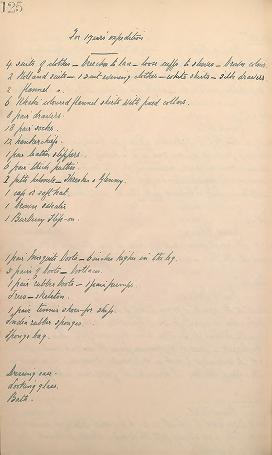 125
For 1 years expedition
4 suits of clothes - breeches to knee - loose cuffs to sleeves - brown colour.
2 Holland suits - 1 suit evening clothes - white shirts - silk drawers
2 flannel
6 Khaki coloured flannel shirts with fixed collars.
8 pair drawers.
18 pair socks.
12 handkerchiefs.
1 pair leather slippers.
6 pair thick putties.
2 pith helmets -
1 cap or soft hat.
1 brown sweater.
1 Burberry slip-on.
1 pair Mosquito boots - 6 inches higher in the leg.
3 pairs of boots - bootlaces.
1 pair rubber boots - 1 pair pumps.
Trees - skeleton.
1 pair tennis shoes for ship.
India rubber sponges.
Sponge bag.
Dressing case.
Looking glass.
Bath.